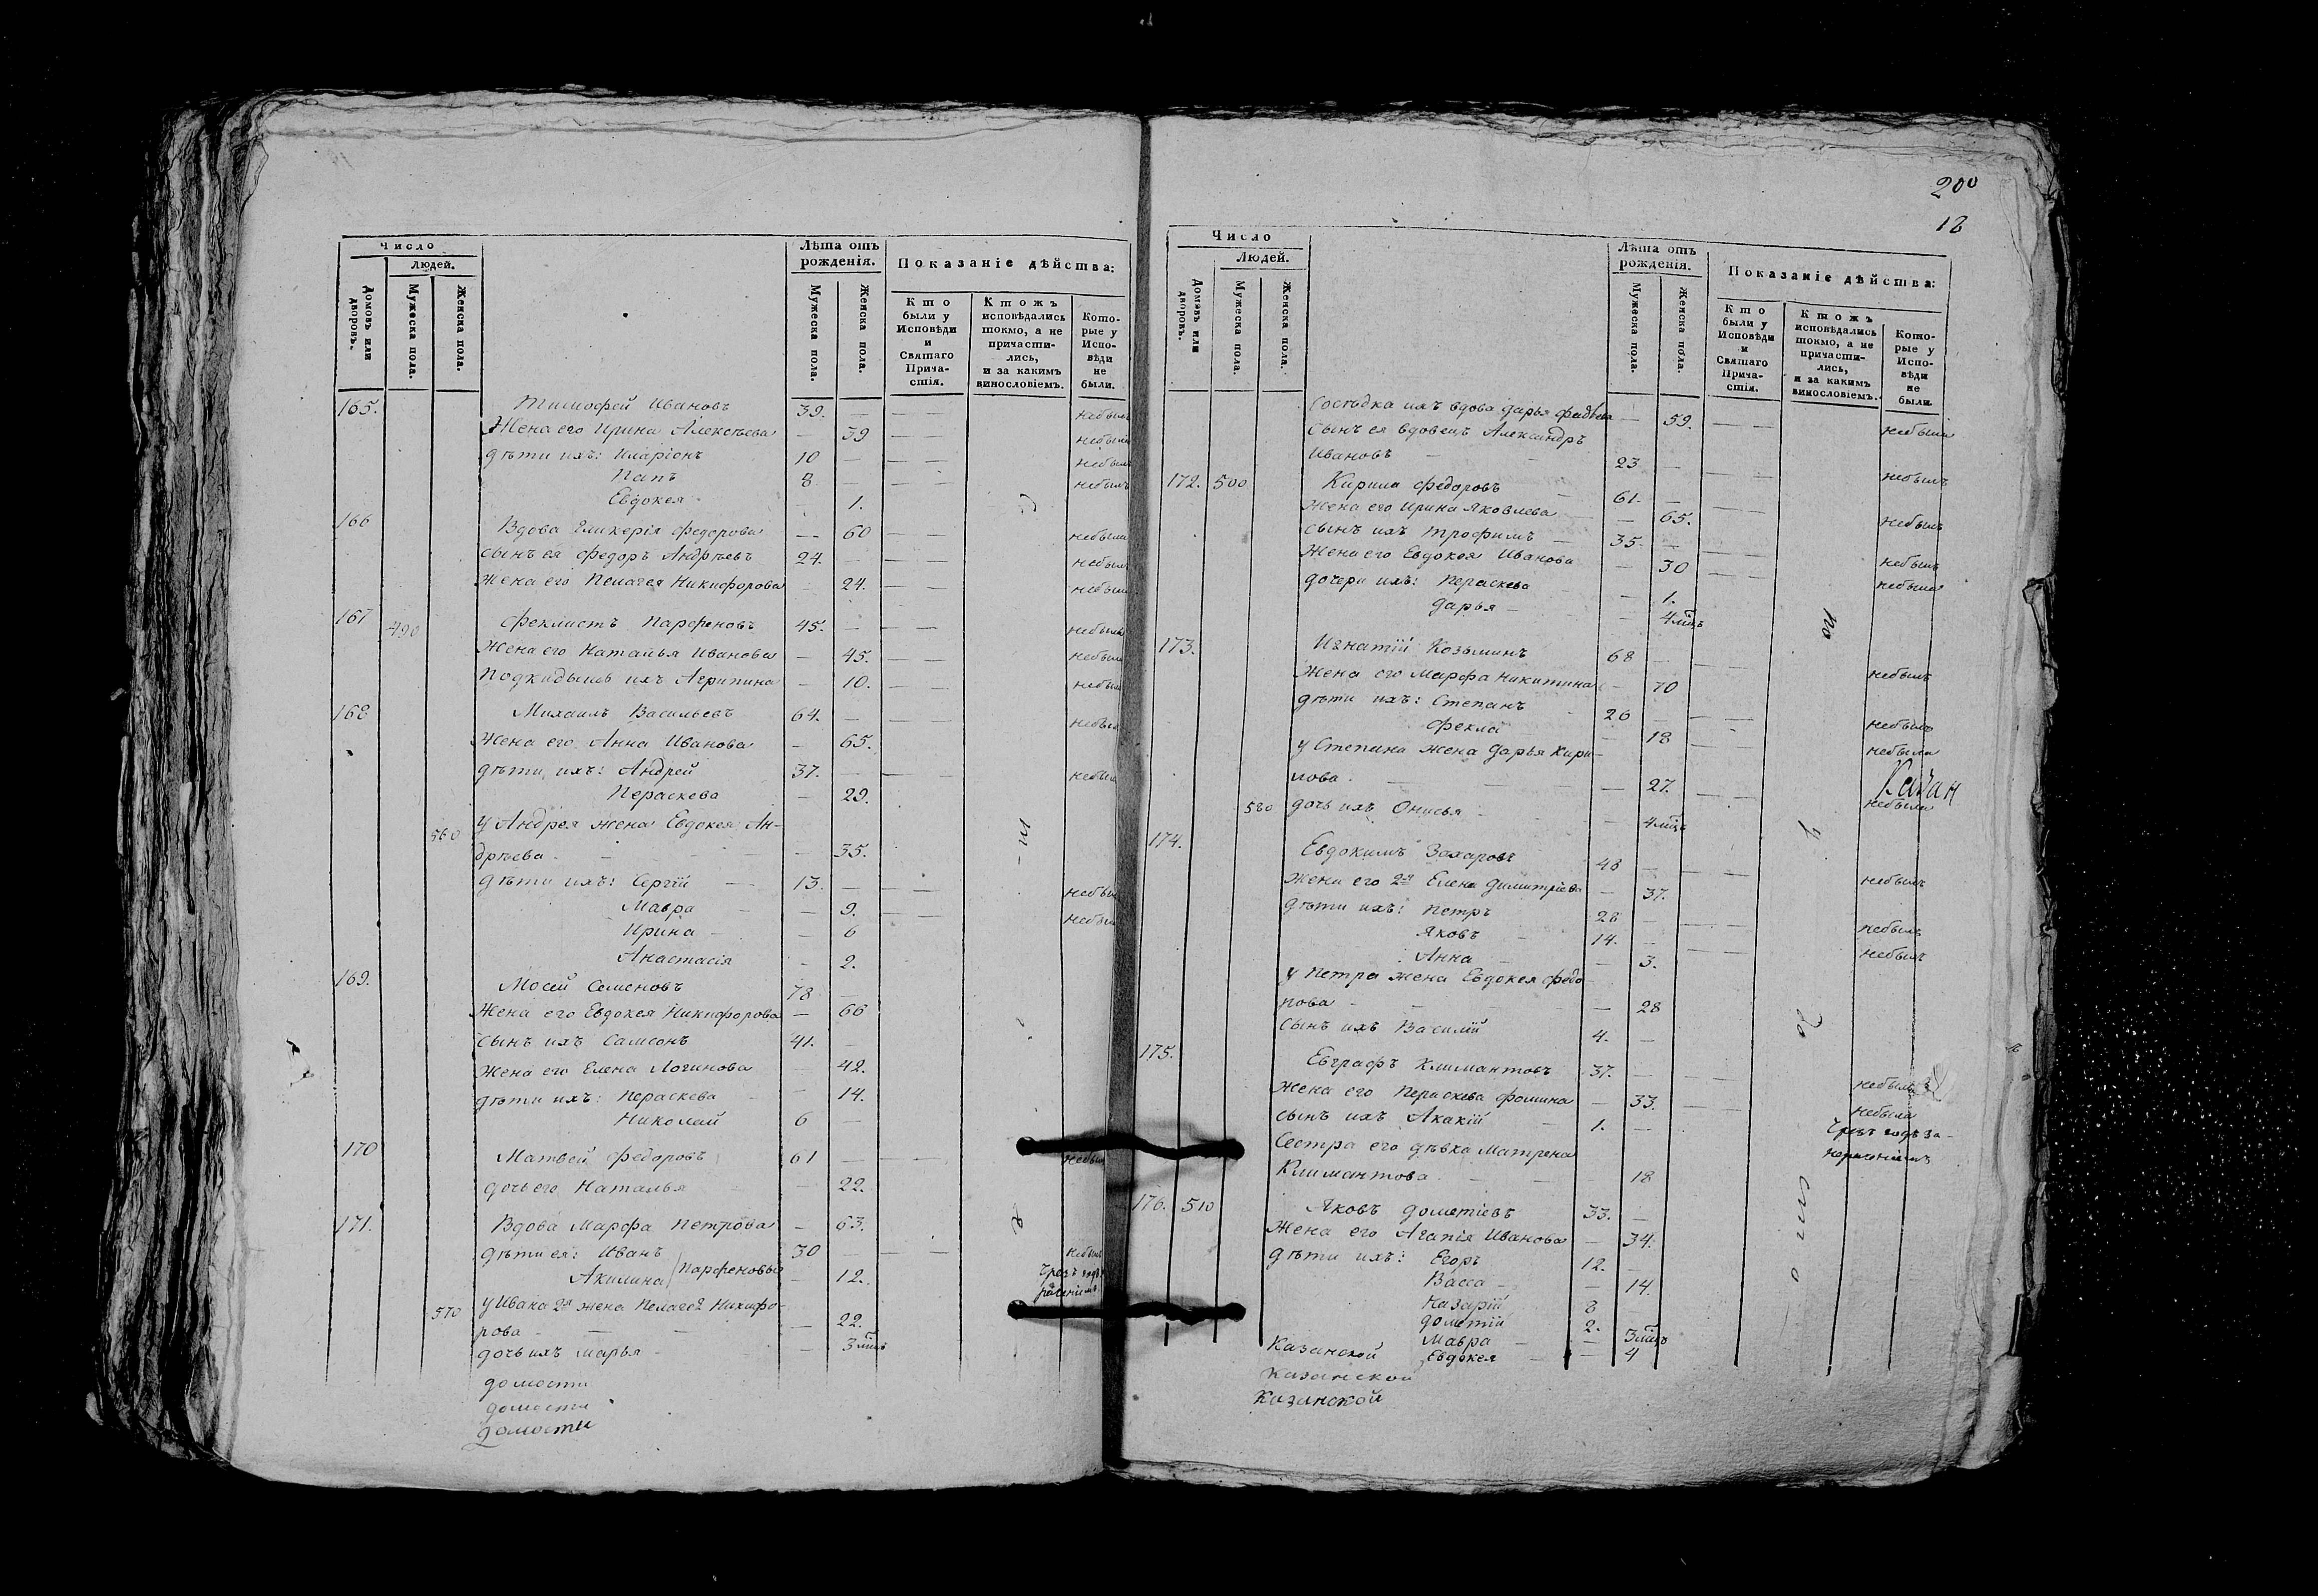 Число
Людей.
Домовъ или дворовъ.
Мужеска пола.
Женска пола.
Лѣта отъ рожденія.
Мужеска пола.
Женска пола.
Показаніе дѣйства:
Кто были у Исповѣди и Святаго Причастія.
Ктожъ исповѣдались токмо, а не причастились, и за какимъ винословіемъ.
Которые у Исповѣди не были.
165. Тимофей Ивановъ 39. — небылъ
Жена его Ирина Алексѣева — 39 небыла
дѣти ихъ: Иларіонъ 10 — небылъ
Папъ 8 — небылъ
Евдокея 1.
166 Вдова Гликерія Федорова — 60 небыла
сынъ ея Федоръ Андрѣевъ 24. — небылъ
жена его Пелагея Никифорова — 24. небыла
167 490 Феклистъ Парфеновъ 45. — небылъ
Жена его Наталья Иванова — 45. небыла
Подкидышь ихъ Агрипина — 10. небыла
168 Михаилъ Васильевъ 64. — небылъ
Жена его Анна Иванова — 65.
дѣти ихъ: Андрей 37. — небылъ
Пераскева — 29.
560 у Андрея жена Евдокея Ан-
дрѣева — 35.
дѣти ихъ: Сергій 13. — небылъ
Мавра — 9. небыла
Ирина — 6
Анастасія — 2.
169. Мосей Семеновъ 78 —
Жена его Евдокея Никифорова — 66
сынъ ихъ Самсонъ 41. —
жена его Елена Логинова — 42.
дѣти ихъ: Пераскева — 14.
Николай 6 —
170 Матвей Федоровъ 61 — небылъ
дочь его Наталья — 22.
171. Вдова Марфа Петрова — 63.
дѣти ея: Иванъ 30 — небылъ
Акилина Парфеновы — 12. чрезъ годъ
570 у Ивана 2я жена Пелагея Никифо-
рова — 22.
дочь ихъ Марья — 3 мцъ
домости
домости
домости
200
18
Число
Людей.
Домовъ или дворовъ.
Мужеска пола.
Женска пола.
Лѣта отъ рожденія.
Мужеска пола.
Женска пола.
Показаніе дѣйства:
Кто были у Исповѣди и Святаго Причастія.
Ктожъ исповѣдались токмо, а не причастились, и за какимъ винословіемъ.
Которые у Исповѣди не были.
Сосѣдка ихъ вдова Дарья Фадѣева — 59. небыла
Сынъ ея вдовецъ Александръ
Ивановъ — 23 — небылъ
172. 500 Кирила Федоровъ 61. — небылъ
Жена его Ирина Яковлева — 65.
сынъ ихъ Трофимъ — 35. — небылъ
Жена его Евдокея Иванова — 30 небыла
дочери ихъ: Пераскева — 1.
Дарья — 4 мцъ
173. Игнатій Козьминъ 68 — небылъ
Жена его Марфа Никитина — 70
дѣти ихъ: Степанъ 26 — небылъ
Фекла — 18 небыла
у Степана жена Дарья Кири-
лова — 27. небыла
Казан
580 дочь ихъ Онисья — 4 мцъ
174. Евдокимъ Захаровъ 48 — небылъ
Жена его 2я Елена Димитріева — 37.
дѣти ихъ: Петръ 28 — небылъ
Яковъ 14. — небылъ
Анна — 3.
у Петра жена Евдокея Федо-
рова — 28
сынъ ихъ Василій 4. —
175. Евграфъ Климантовъ 37. — небылъ
жена его Пераскева Фомина — 33. небыла
сынъ ихъ Акакій 1. —
Сестра его дѣвка Матрена чрезъ годъ за
Климантова — 18
176. 510 Яковъ Дометіевъ 33. —
Жена его Агапія Иванова — 34.
дѣти ихъ: Егоръ 12. —
Васса — 14.
Назарій 8 —
Дометій 2. —
Мавра — 3 мцъ
Евдокея — 4
Казанской
Казанской
Казанской